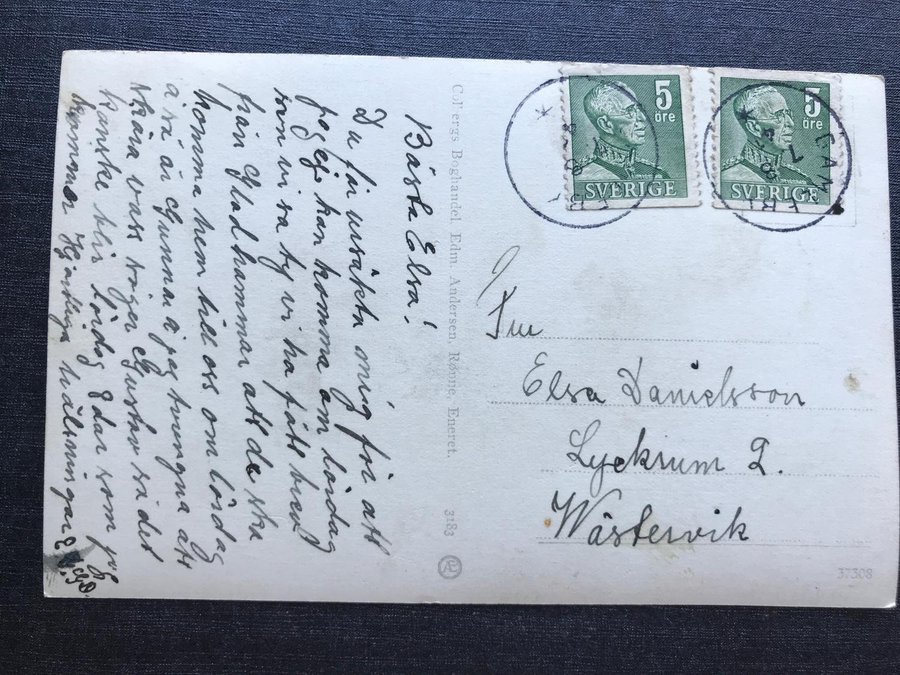 Bästa Elsa!
Du får ursäkta mig för att
jag ej kan komma om lördag
som vi sa ty vi ha fått brev
från Gladhammar att de ska
komma hem till oss om lördag
å så är Gunnar å jag tvungna att
skära vass säger Gustav så det
kanske blir lördag 8 dar som jag
kommer Hjärtliga hälsningar
Colbergs Boghandel Edm. Andersen. Rønne, Eneret.
3183
5
öre
SVERIGE
5
öre
SVERIGE
Fru
Elsa Danielsson
Lyckrum 2.
Wästervik
37308